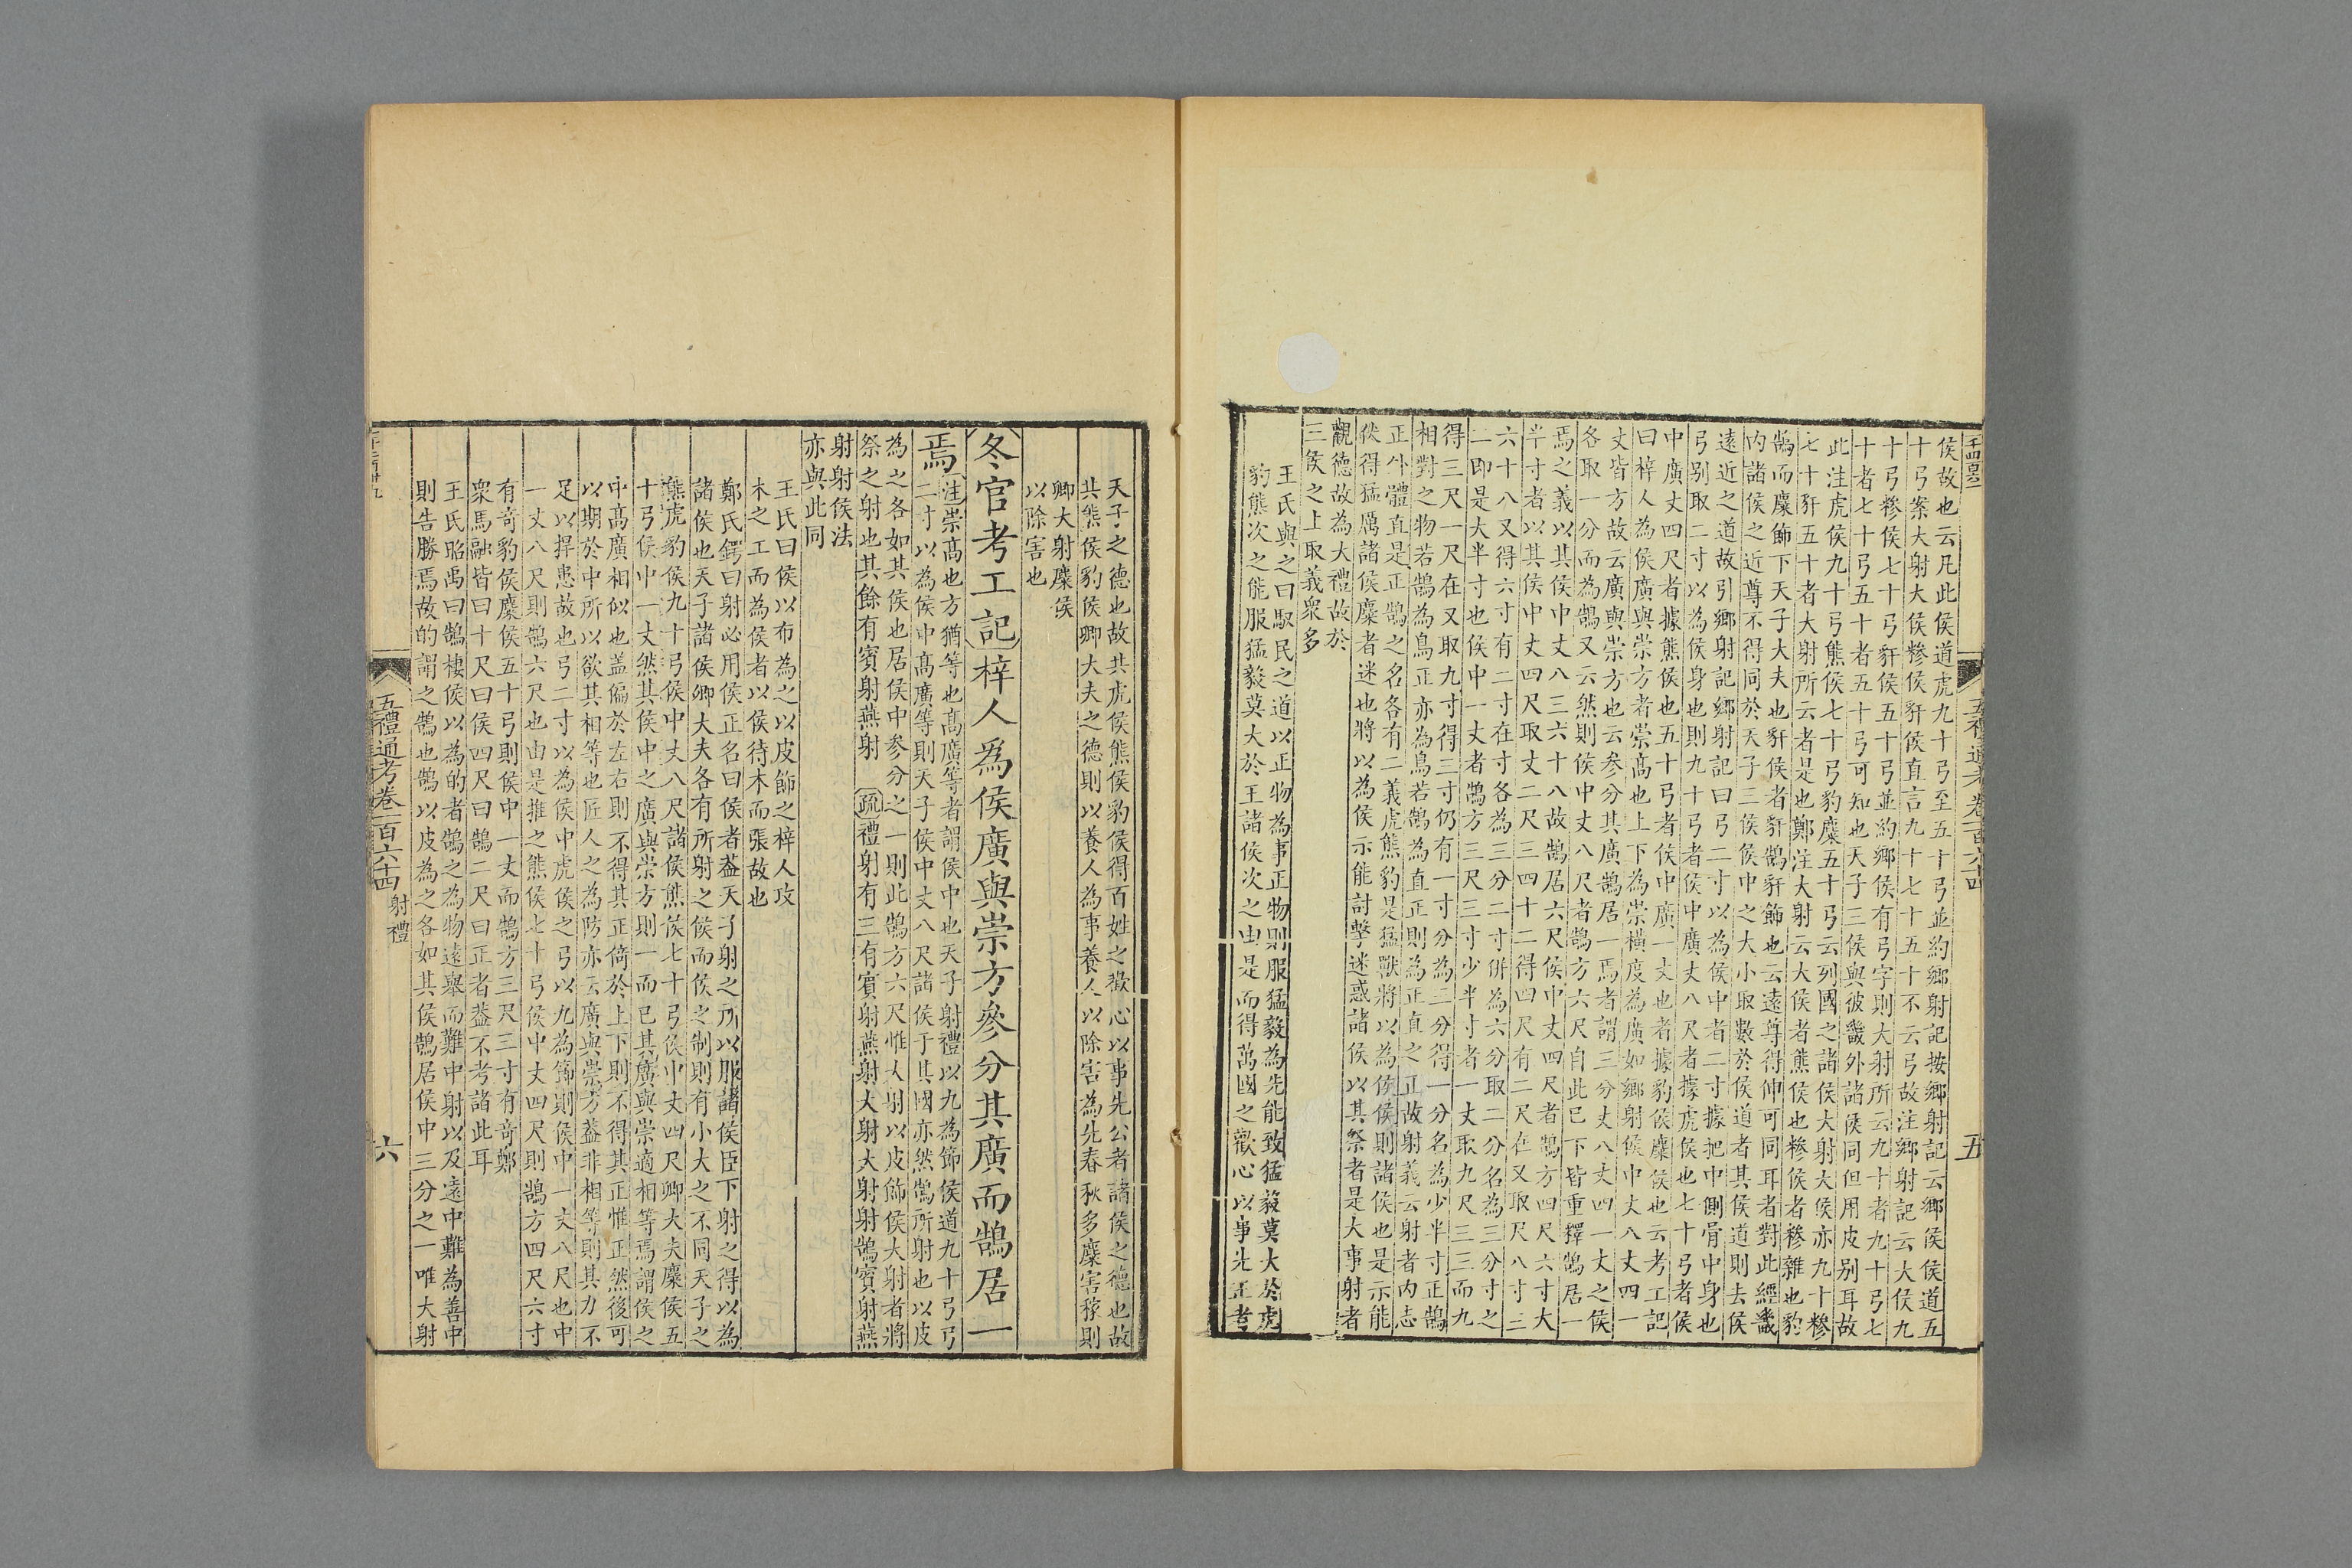 侯故也云凡此侯道虎九十弓至五十弓並約鄉射記按鄉射記云鄉侯侯道五
十弓案大射大侯糝侯豻侯直言九十七十五十不云弓故注鄉射記云大侯九
十弓糝侯七十弓豻侯五十弓並約鄉侯有弓字則大射所云九十者九十弓七
十者七十弓五十者五十弓可知也天子三侯與彼畿外諸侯同但用皮别耳故
此注虎侯九十弓熊侯七十弓豹麋五十弓云列國之諸侯大射大侯亦九十糝
七十豻五十者大射所云者是也鄭注大射云大侯者熊侯也糝侯者糝雜也豹
鵠而麋飾下天子大夫也豻侯者豻鵠豻飾也云遠尊得伸可同耳者對此經畿
内諸侯之近尊不得同於天子三侯侯中之大小取數於侯道者其侯道則去侯
遠近之道故引鄉射記鄉射記曰弓二寸以為侯中者二寸據把中側骨中身也
弓别取二寸以為侯身也則九十弓者侯中廣丈八尺者據虎侯也七十弓者侯
中廣丈四尺者據熊侯也五十弓者侯中廣一丈也者據豹侯麋侯也云考工記
曰梓人為侯廣與崇方者崇高也上下為崇橫度為廣如鄉射侯中丈八丈四一
丈皆方故云廣與崇方也云參分其廣鵠居一焉者謂三分丈八丈四一丈之侯
各取一分而為鵠又云然則侯中丈八尺者鵠方六尺自此已下皆重釋鵠居一
焉之義以其侯中丈八三六十八故鵠居六尺侯中丈四尺者鵠方四尺六寸大
半寸者以其侯中丈四尺取丈二尺三四十二得四尺有二尺在又取尺八寸三
六十八又得六寸有二寸在寸各為三分二寸併為六分取二分名為三分寸之
二即是大半寸也侯中一丈者鵠方三尺三寸少半寸者一丈取九尺三三而九
得三尺一尺在又取九寸得三寸仍有一寸分為三分得一分名為少半寸正鵠
相對之物若鵠為鳥正亦為鳥若鵠為直正則為正直之正故射義云射者内志
正外體直是正鵠之名各有二義虎熊豹是猛獸將以為侯侯則諸侯也是示能
伏得猛厲諸侯麋者迷也將以為侯示能討擊迷惑諸侯以其祭者是大事射者
觀德故為大禮故於
三侯之上取義衆多
王氏與之曰馭民之道以正物為事正物則服猛毅為先能致猛毅莫大於虎
豹熊次之能服猛毅莫大於王諸侯次之由是而得萬國之歡心以事先王考
五禮通考卷一百六十四
五
天子之德也故共虎侯熊侯豹侯得百姓之歡心以事先公者諸侯之德也故
共熊侯豹侯卿大夫之德則以養人為事養人以除害為先春秋多麋害稼則
卿大射麋侯
以除害也
冬官考工記梓人為侯廣與崇方參分其廣而鵠居一
焉
注崇高也方猶等也高廣等者謂侯中也天子射禮以九為節侯道九十弓弓
二寸以為侯中高廣等則天子侯中丈八尺諸侯于其國亦然鵠所射也以皮
為之各如其侯也居侯中參分之一則此鵠方六尺惟大射以皮飾侯大射者將
祭之射也其餘有賓射燕射　疏禮射有三有賓射燕射大射大射射鵠賓射燕
射射侯法
亦與此同
王氏曰侯以布為之以皮飾之梓人攻
木之工而為侯者以侯待木而張故也
鄭氏鍔曰射必用侯正名曰侯者蓋天子射之所以服諸侯臣下射之得以為
諸侯也天子諸侯卿大夫各有所射之侯而侯之制則有小大之不同天子之
熊虎豹侯九十弓侯中丈八尺諸侯熊侯七十弓侯中丈四尺卿大夫麋侯五
十弓侯中一丈然其侯中之廣與崇方則一而已其廣與崇適相等焉謂侯之
中高廣相似也蓋偏於左右則不得其正倚於上下則不得其正惟正然後可
以期於中所以欲其相等也匠人之為防亦云廣與崇方蓋非相等則其力不
足以捍患故也弓二寸以為侯中虎侯之弓以九為節則侯中一丈八尺也中
一丈八尺則鵠六尺也由是推之熊侯七十弓侯中丈四尺則鵠方四尺六寸
有奇豹侯麋侯五十弓則侯中一丈而鵠方三尺三寸有奇鄭
衆馬融皆曰十尺曰侯四尺曰鵠二尺曰正者蓋不考諸此耳
王氏昭禹曰鵠棲侯以為的者鵠之為物遠舉而難中射以及遠中難為善中
則告勝焉故的謂之鵠也鵠以皮為之各如其侯鵠居侯中三分之一唯大射
五禮通考卷一百六十四　射禮
六